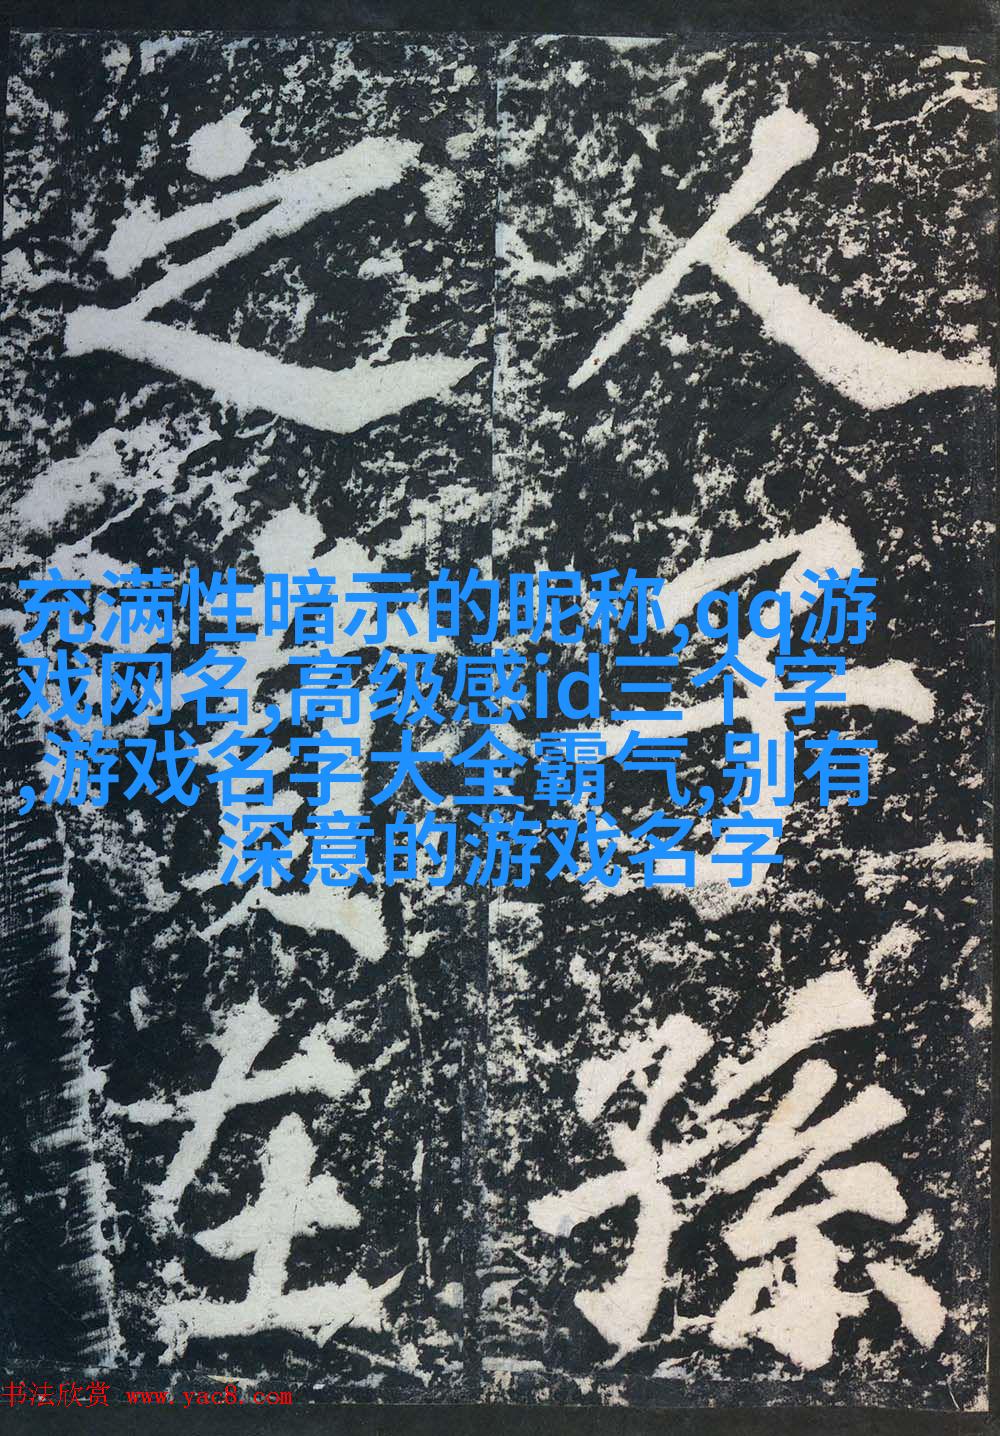 人 孫
之 在
充满性暗示的昵称,qq游
戏网名,高级感id三个字
,游戏名字大全霸气,别有
深意的游戏名字
书法欣赏 www.yac8.com